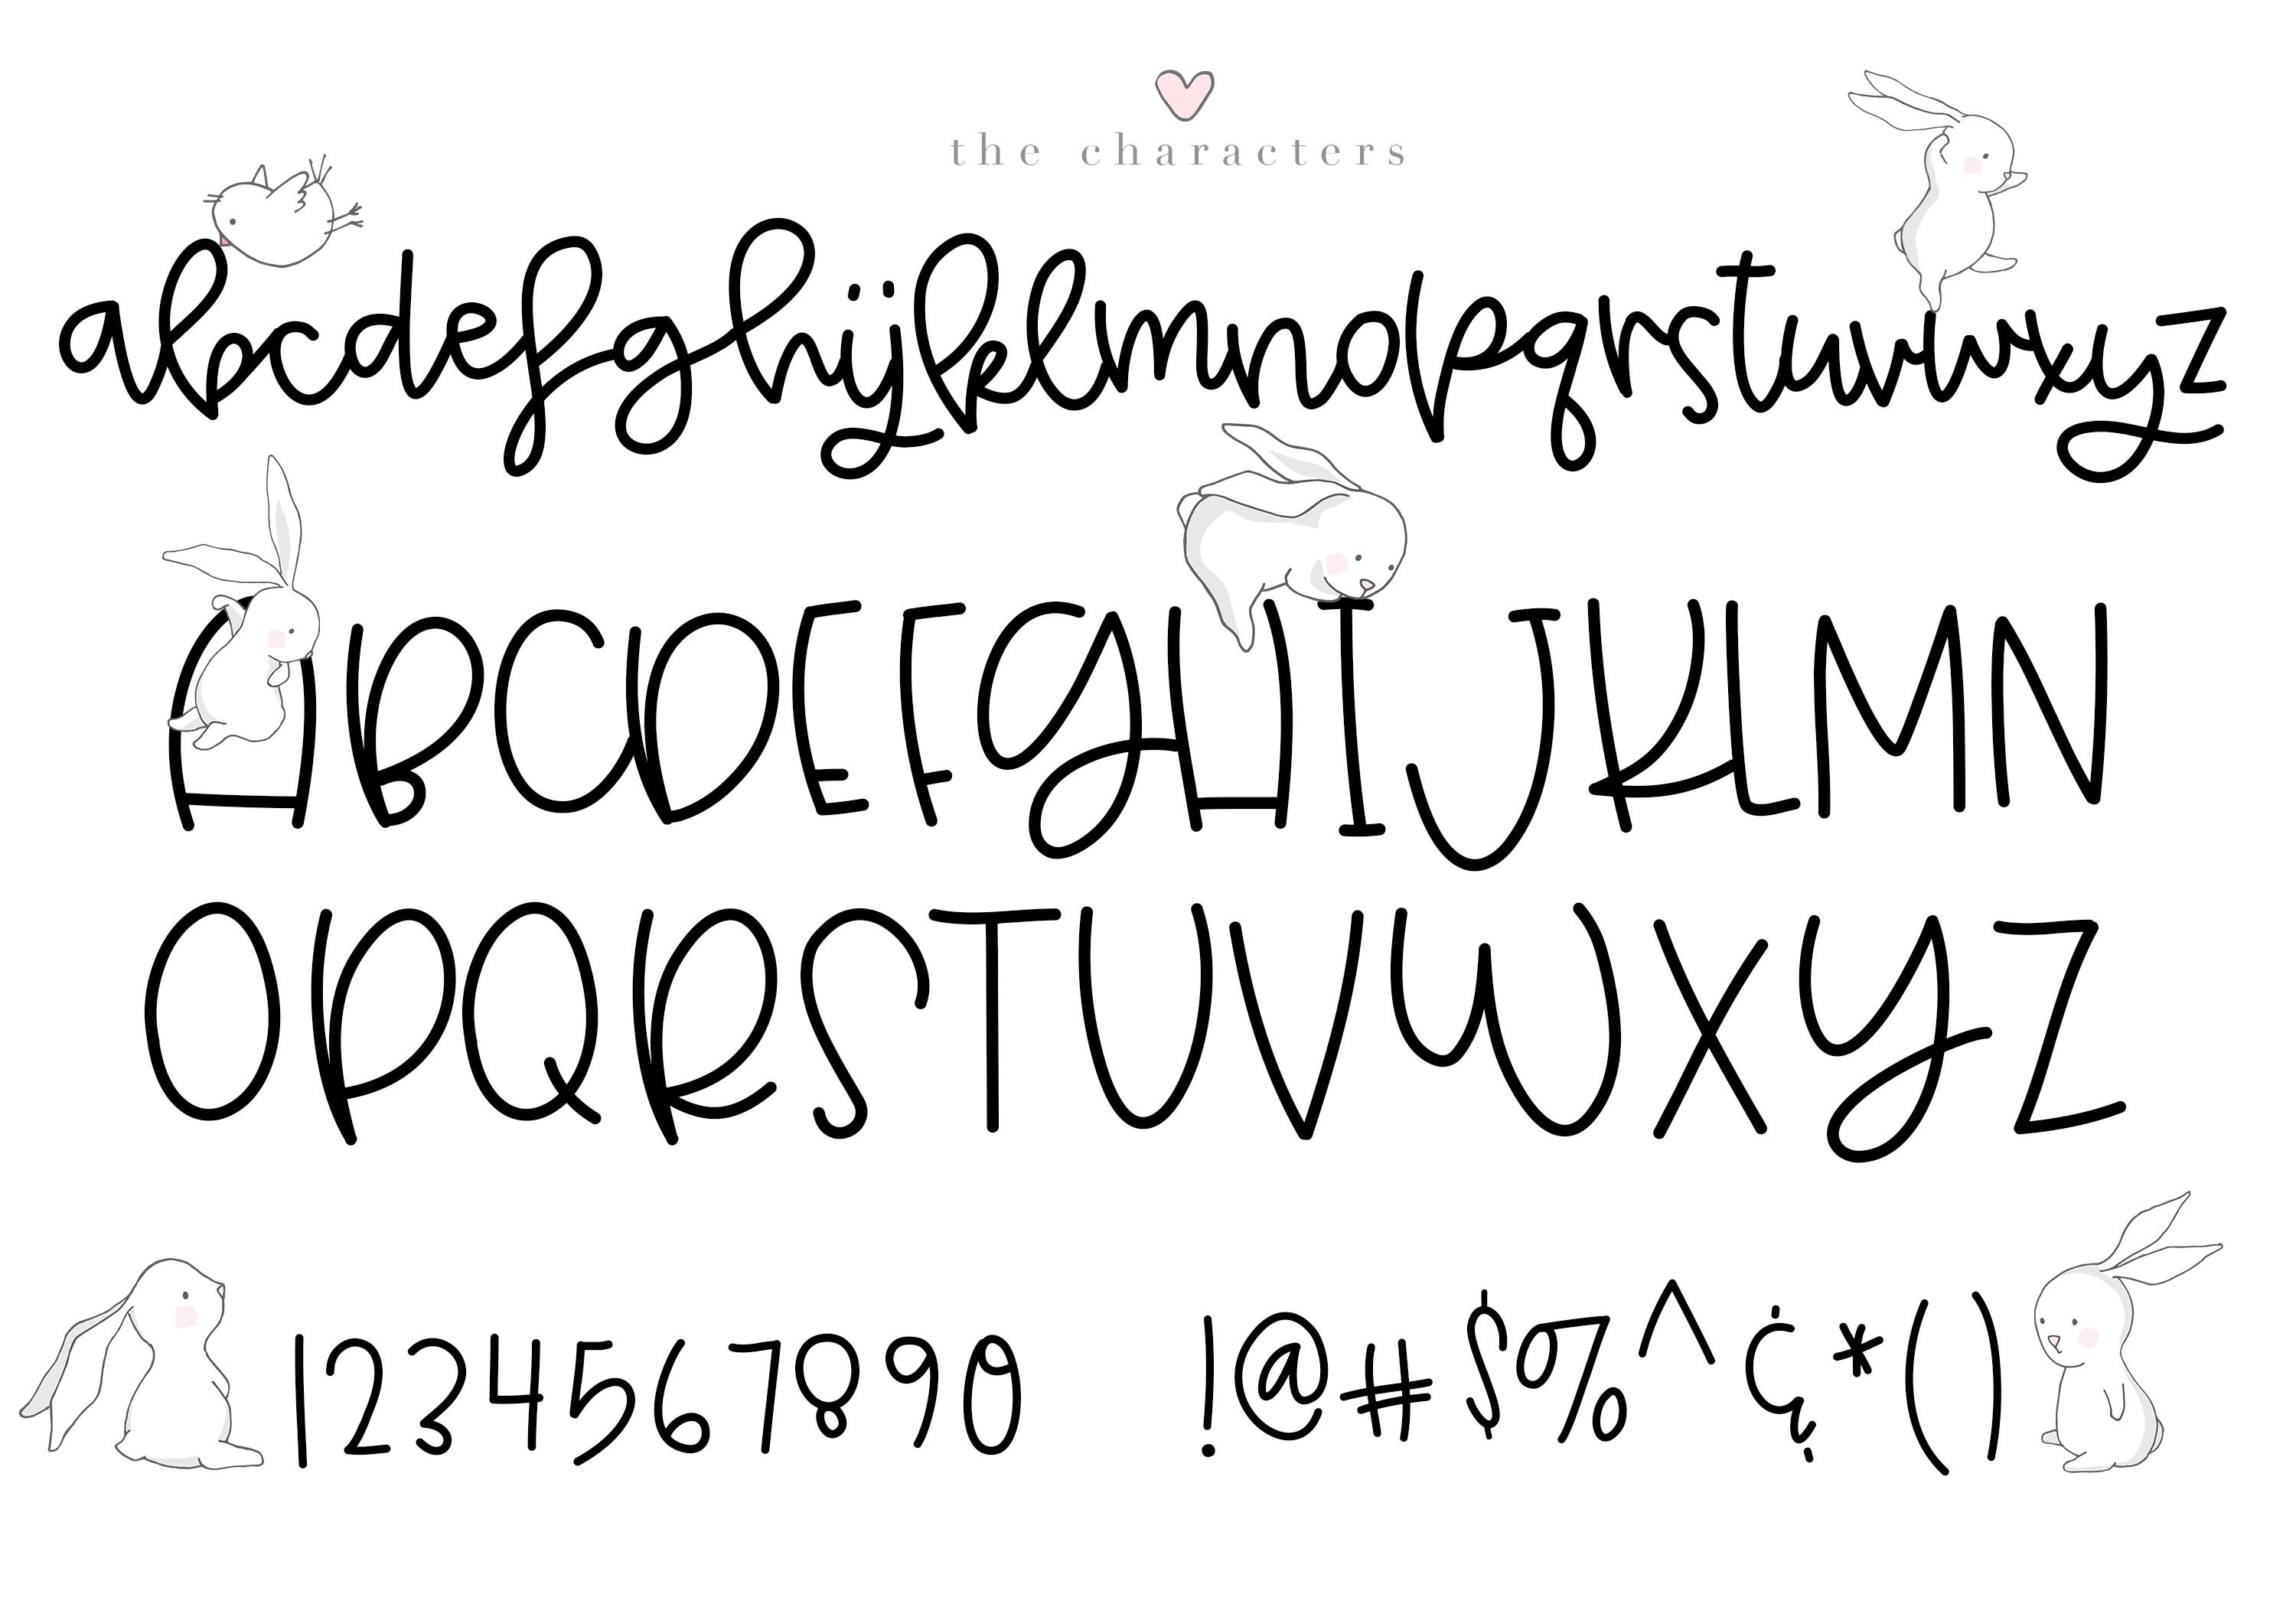 the characters
abcdefghijklmnopqrstuvwxyz
ABCDEFGHIJKLMN
OPQRSTUVWXYZ
1234567890 !@#$%^¢*()